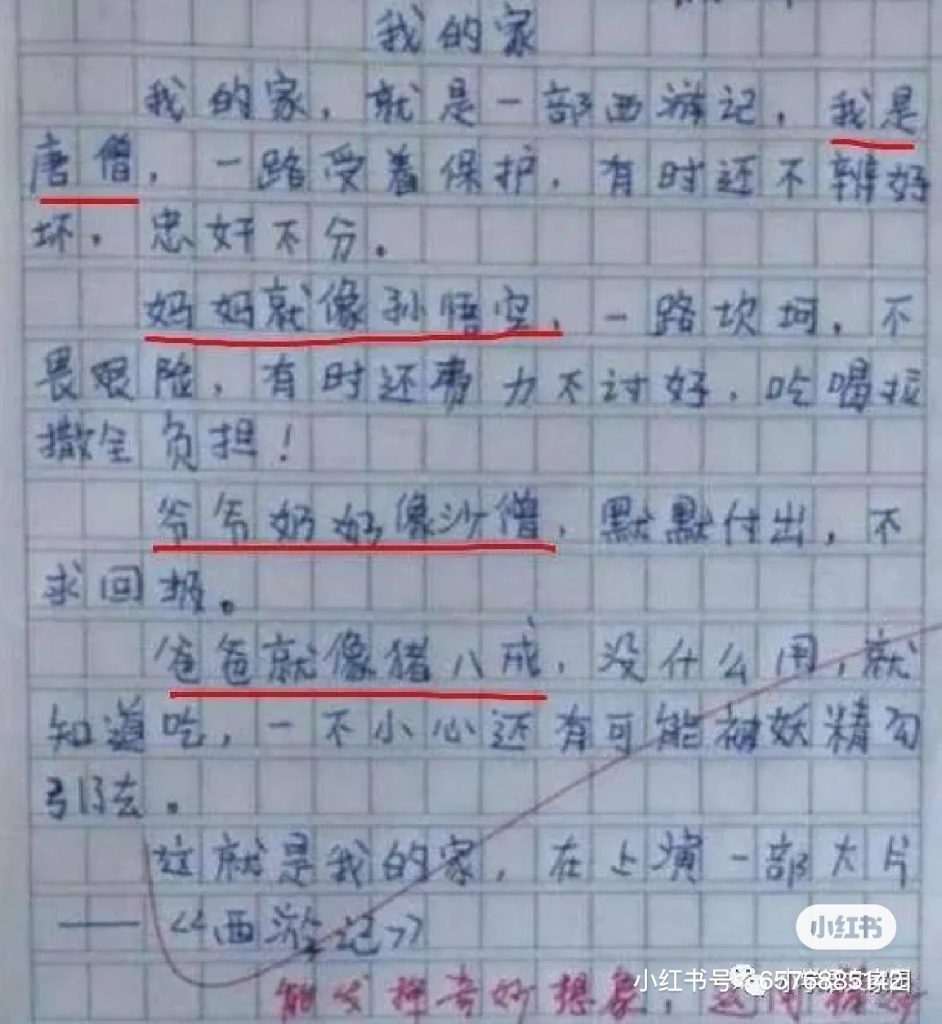 我的家
我的家，就是一部西游记，我是
唐僧，一路受着保护，有时还不辨好
坏，忠奸不分。
妈妈就像孙悟空，一路坎坷，不
畏艰险，有时还费力不讨好，吃喝拉
撒全负担！
爷爷奶奶像沙僧，默默付出，不
求回报。
爸爸就像猪八戒，没什么用，就
知道吃，一不小心还有可能被妖精勾
引去。
这就是我的家，在上演一部大片
——《西游记》
小红书
能发挥奇妙想象，
小红书号：6576885142